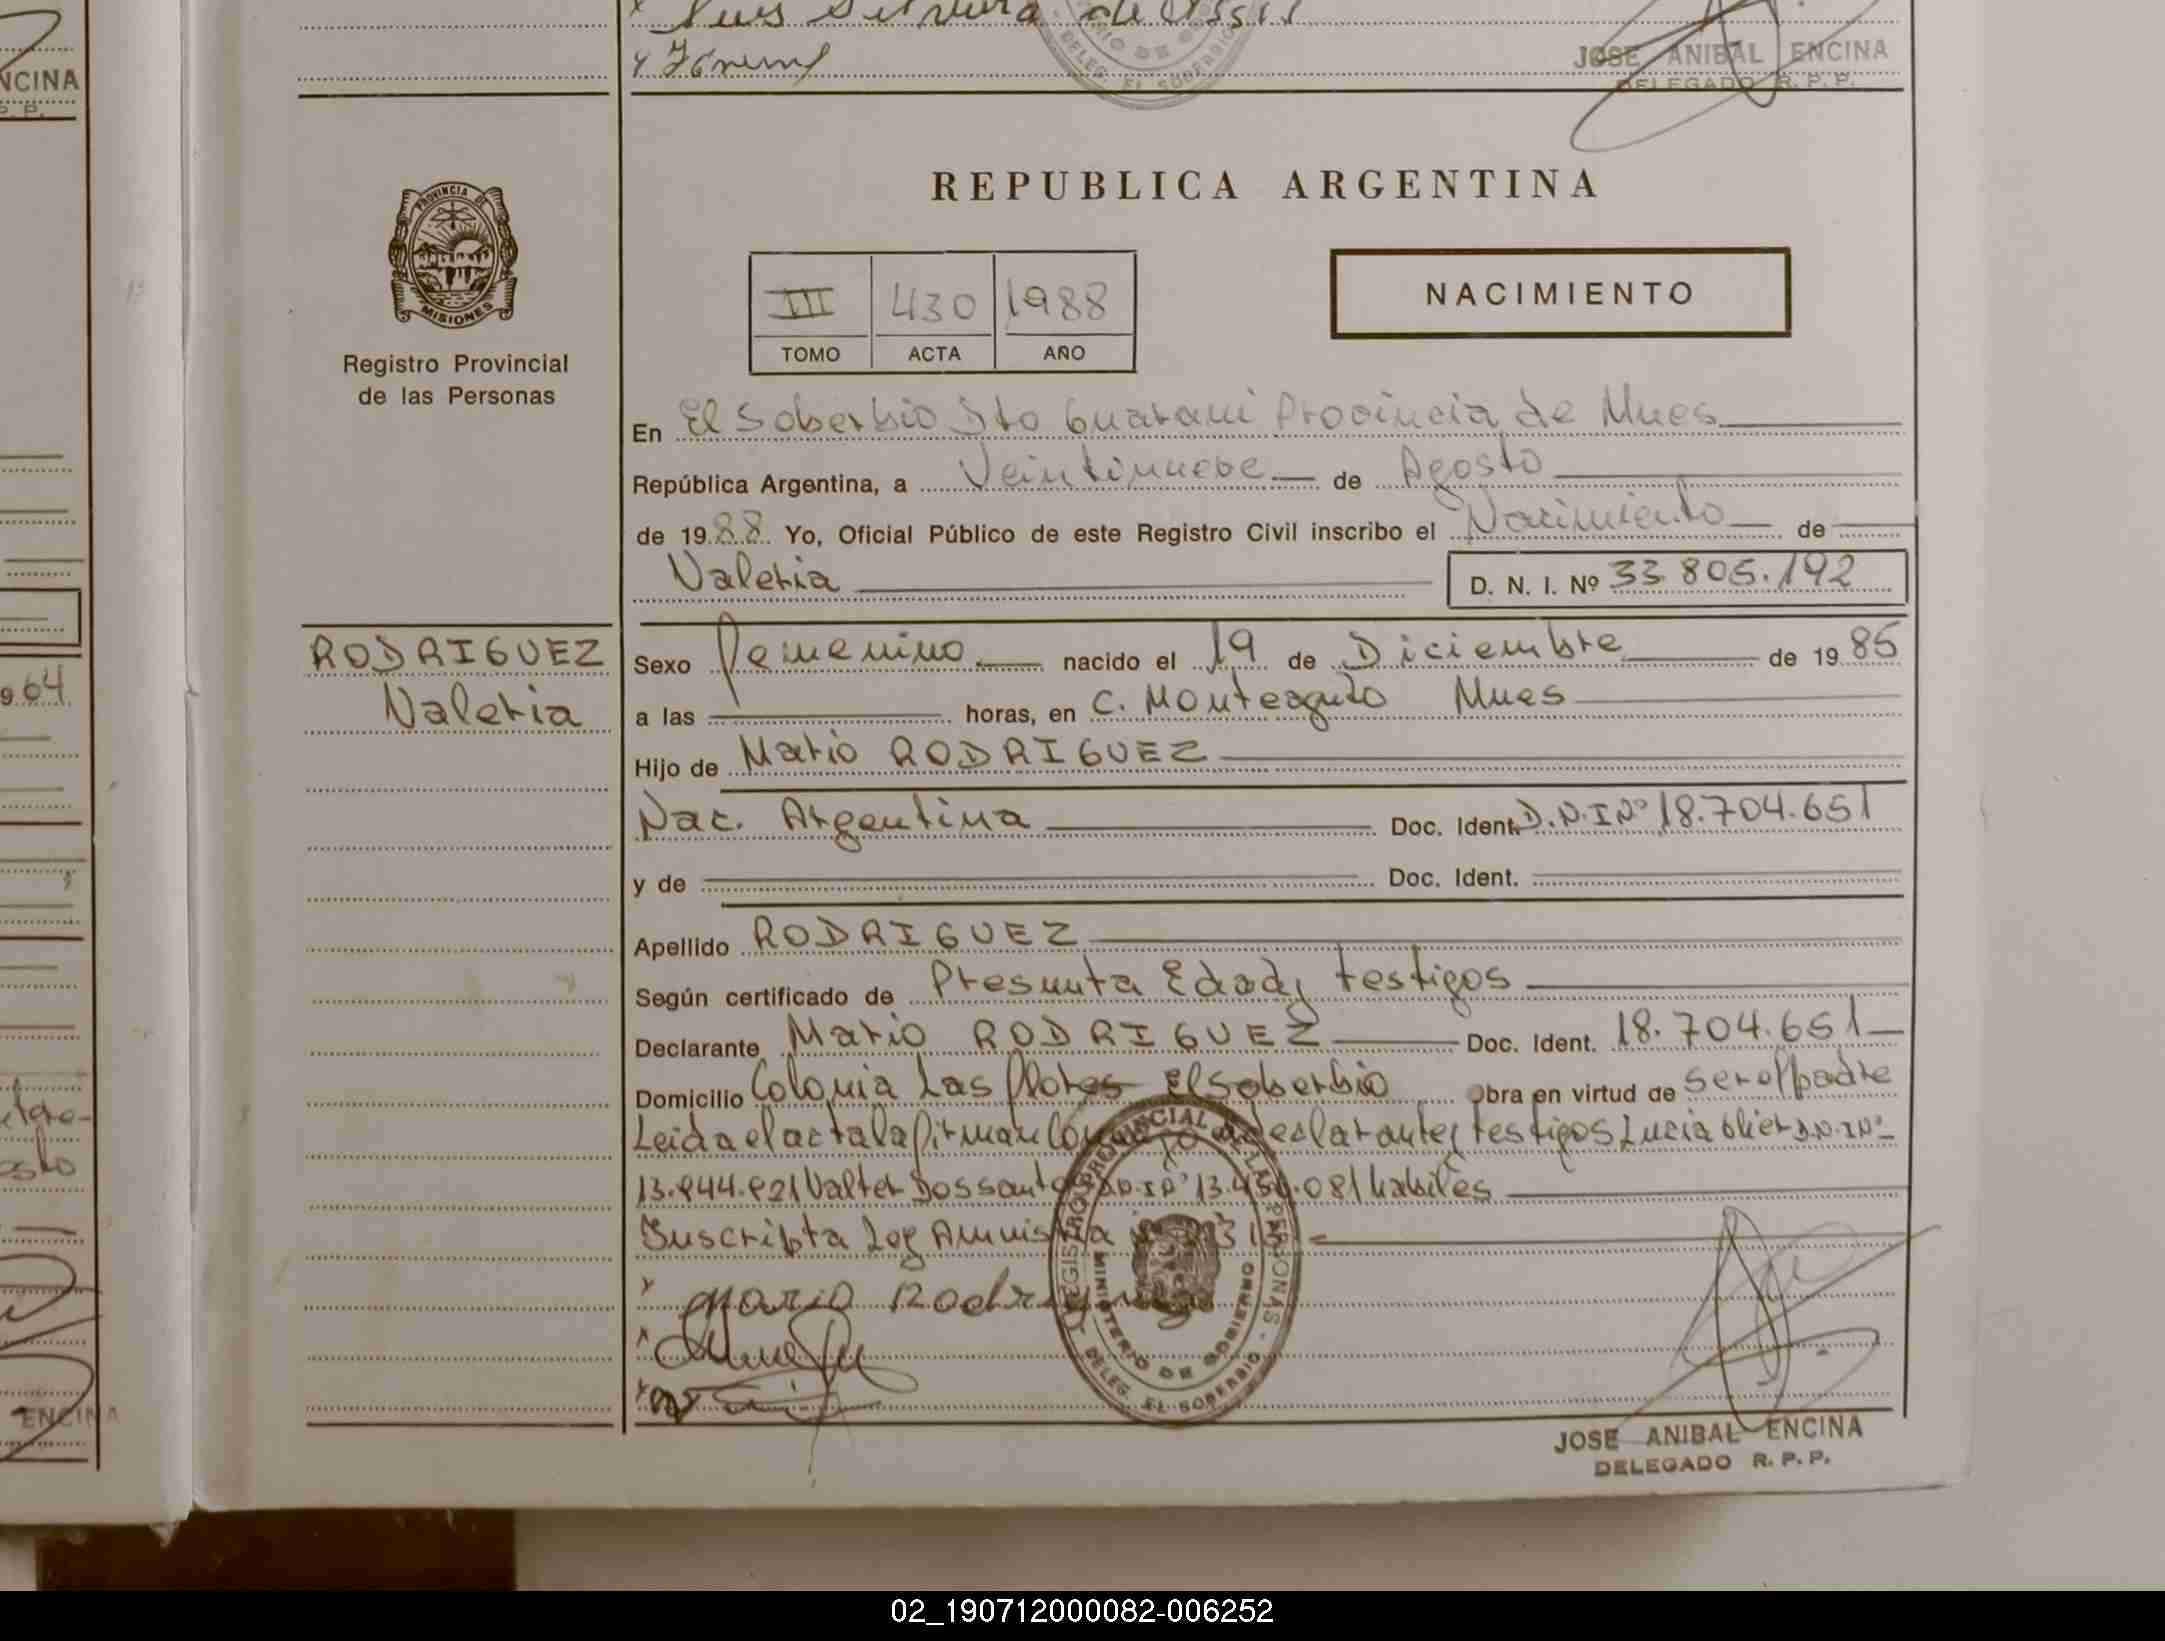 NCINA
P. P.
Luis Silveira de Assis
JOSE ANIBAL ENCINA
DELEGADO R. P. P.
DELEG. EL SOBERBIO
PROVINCIA DE
MISIONES
Registro Provincial
de las Personas
REPUBLICA ARGENTINA
III 430 1988
TOMO ACTA AÑO
NACIMIENTO
En El Soberbio Dto Guarani Provincia de Mnes
República Argentina, a Veintinuebe de Agosto
de 1988 Yo, Oficial Público de este Registro Civil inscribo el Nacimiento de
Valeria D. N. I. Nº 33.805.192
RODRIGUEZ
Valeria
Sexo femenino nacido el 19 de Diciembre de 1985
a las horas, en C. Monteagudo Mnes
Hijo de Mario RODRIGUEZ
Nac. Argentina Doc. Ident. D.N.I Nº 18.704.651
y de Doc. Ident.
Apellido RODRIGUEZ
Según certificado de Presunta Edad y testigos
Declarante Mario RODRIGUEZ Doc. Ident. 18.704.651
Domicilio Colonia Las flores El Soberbio Obra en virtud de ser el padre
Leida el acta la firman Conmigo declarante y testigos Lucia D.N.I Nº
13.944.921 Valter Dossanto D.N.I Nº 13.454.081 habiles
Suscripta Ley Amnistia
Mario Rodriguez
REGISTRO PROVINCIAL DE LAS PERSONAS - DELEG. EL SOBERBIO
MINISTERIO DE GOBIERNO
JOSE ANIBAL ENCINA
DELEGADO R. P. P.
964
ENCINA
02_190712000082-006252